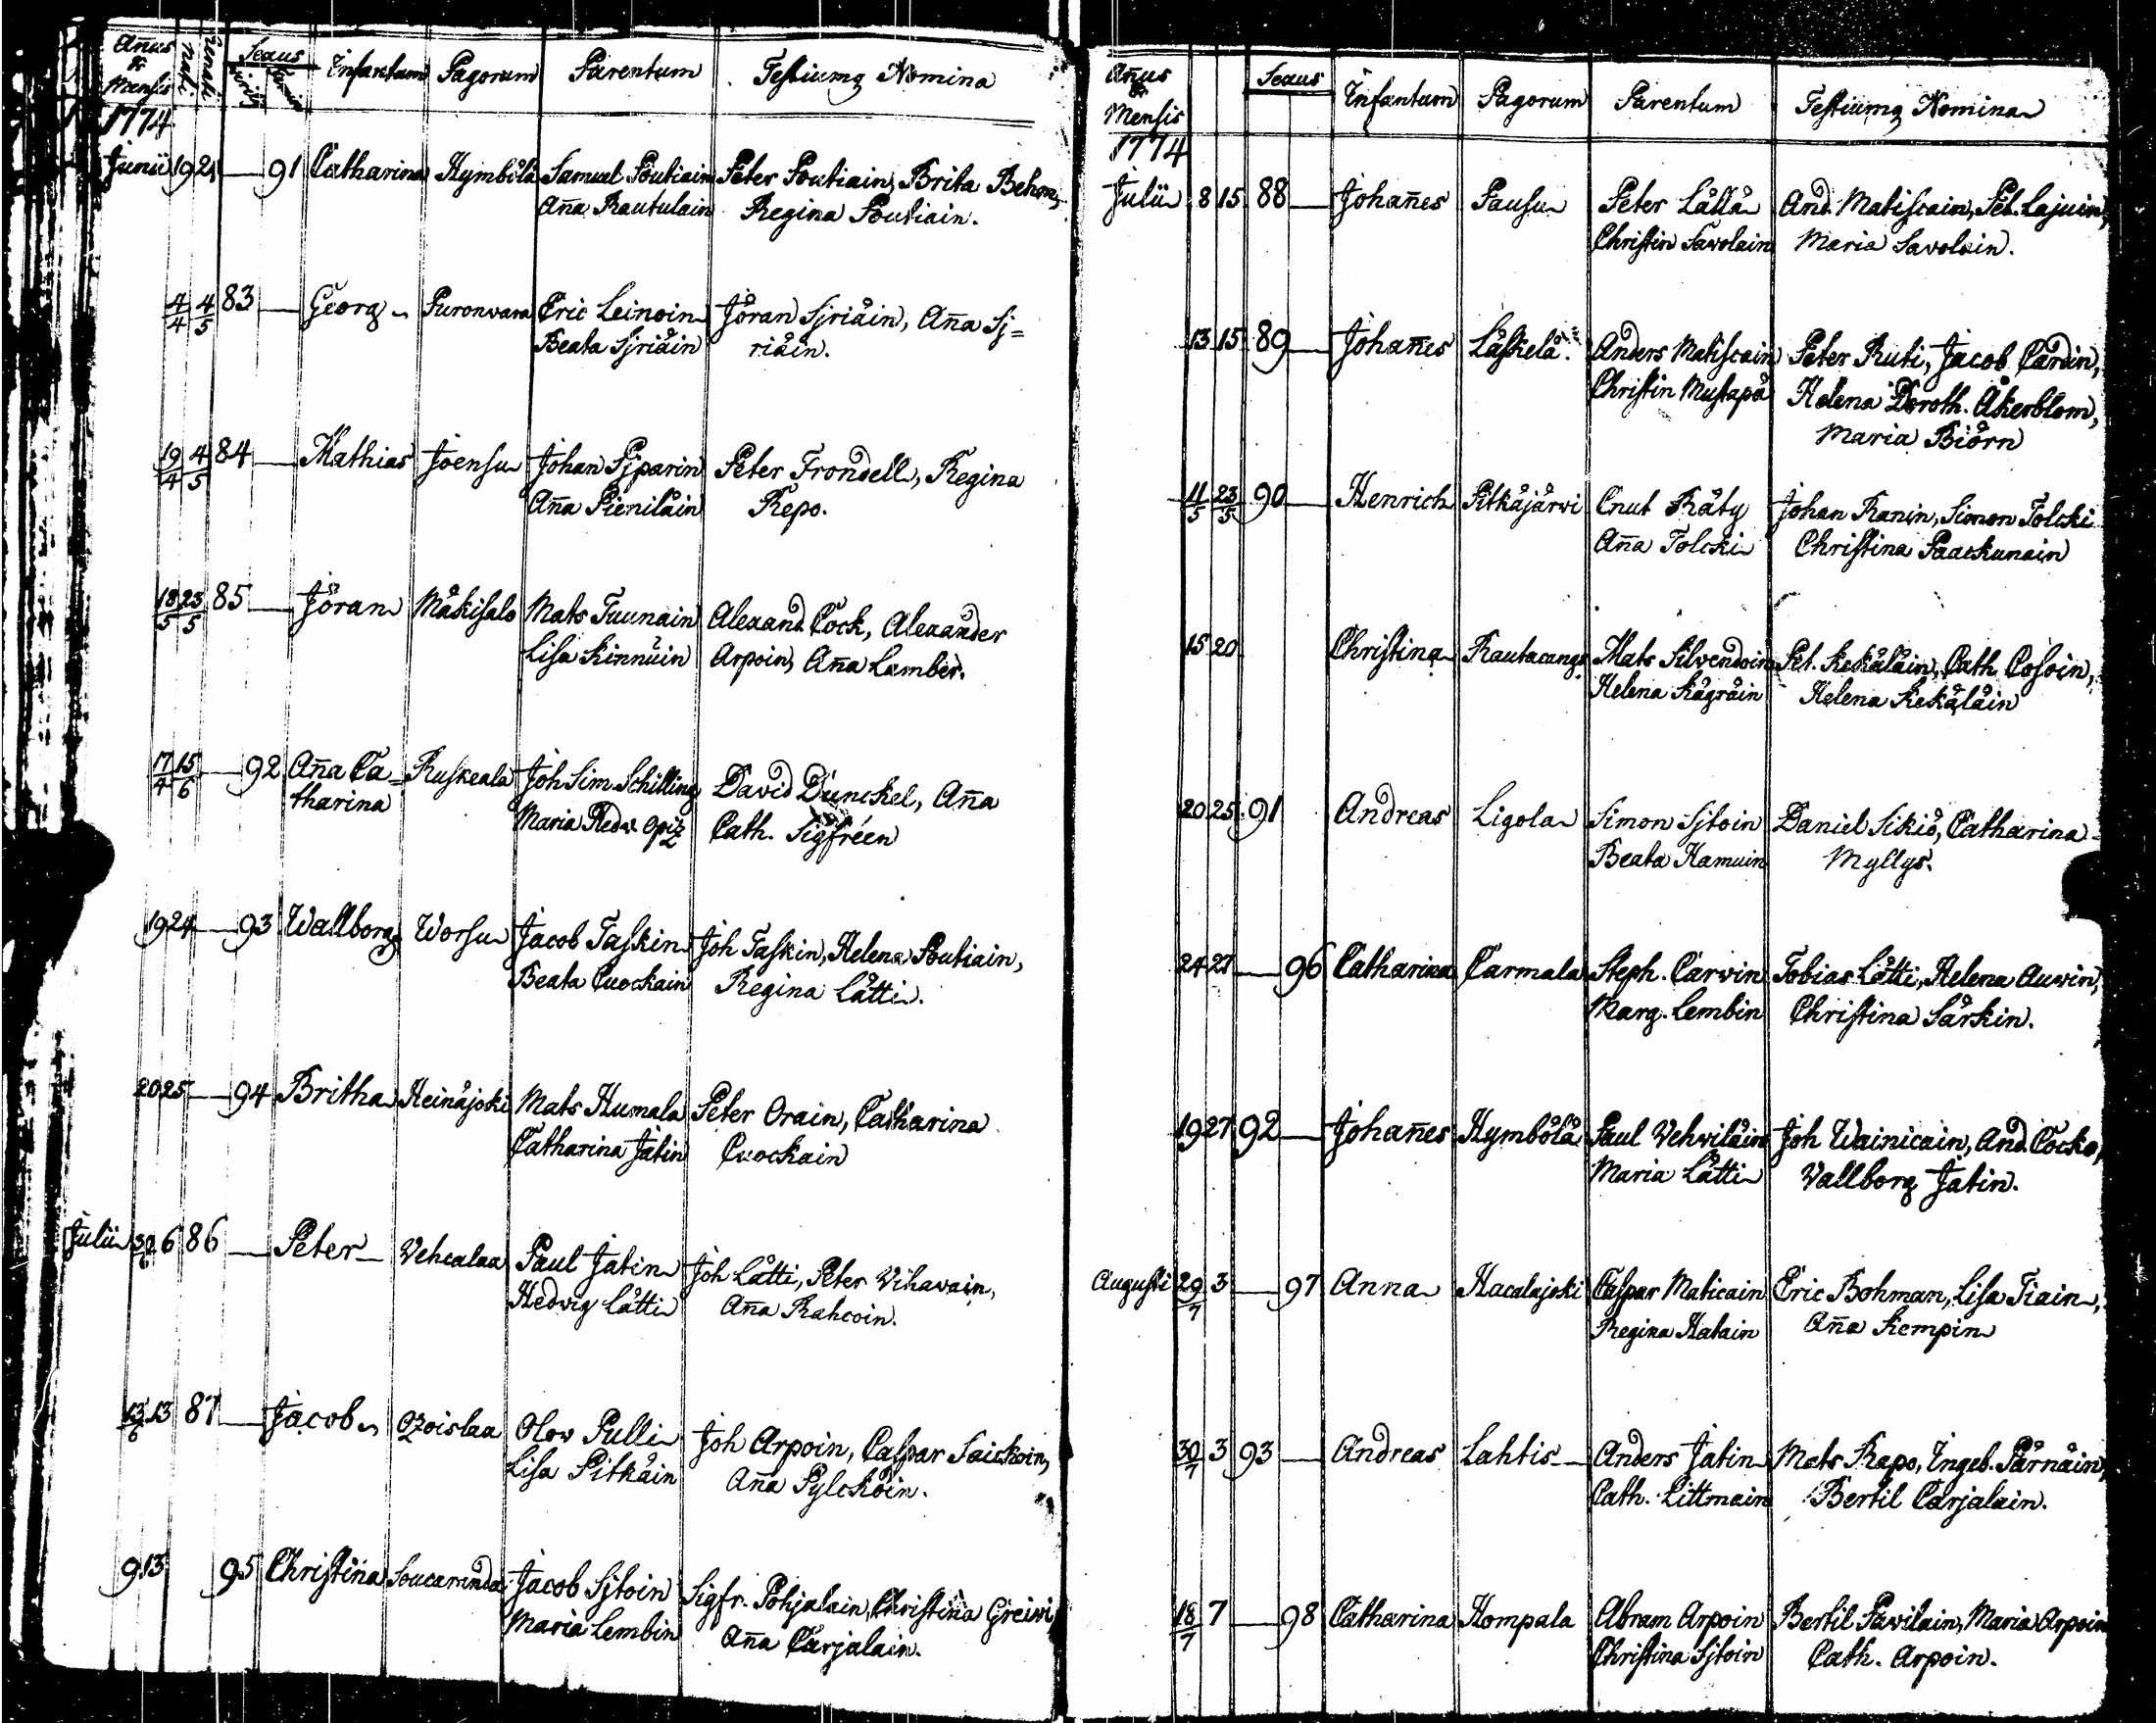 Añus & Mensis Nati Renati Sexus Viril. Femin. Infantum Pagorum Parentum Testiumq Nomina
1774
Junii 19 21 — 91 Catharina Hymbölä Samuel Poutiain Peter Poutiain, Brita Behm,
Aña Rautulain Regina Poutiain.
4/4 4/5 83 — Georg Puronvara Eric Leinoin Jöran Sjriäin, Aña Sj=
Beata Sjriäin riäin.
19/4 4/5 84 — Mathias Joensu Johan Pjparin Peter Frondell, Regina
Aña Pieniläin Repo.
18/5 23/5 85 — Jöran Mäkisalo Mats Tuunain Alexand Cock, Alexander
Lisa Kinnuin Arpoin, Aña Lamber.
17/4 15/6 — 92 Aña Ca= Ruskeala Joh Sim Schilling David Dunckel, Aña
tharina Maria Hedv. Opiz Cath. Sigfréen
19 24 — 93 Wallborg Worsu Jacob Taskin Joh Taskin, Helena Poutiain,
Beata Cuockain Regina Lätti.
20 25 — 94 Britha Heinäjoki Mats Humala Peter Orain, Catharina
Catharina Jatin Cuockain
Julii 30/6 6 86 — Peter Vehcalaa Paul Jatin Joh Lätti, Peter Vihavain,
Hedvig Lätti Aña Rahcoin.
13/6 13 87 — Jacob Ozoislaa Olov Pulli Joh Arpoin, Caspar Saickoin,
Lisa Pitkäin Aña Pylcköin.
9 13 95 Christina Soucaranda Jacob Sjtoin Sigfr. Pohjalain, Christina Greivi,
Maria Lembin Aña Carjalain.
Añus & Mensis Sexus Infantum Pagorum Parentum Testiumq Nomina
1774
Julii 8 15 88 — Johañes Pausu Peter Lällä And. Matiscain, Pet. Lajuin,
Christin Savolain Maria Savolain.
13 15 89 — Johañes Läskelä Anders Matiscain Peter Ruti, Jacob Cardin,
Christin Mustapä Helena Doroth. Åkerblom,
Maria Biörn
11/5 23/5 90 — Henrich Pitkäjärvi Cnut Räty Johan Ranin, Simon Tolcki
Aña Tolcki Christina Paackunain
15 20 Christina Rautacanga Mats Silvendoin Pet. Kekäläin, Cath Cosoin,
Helena Kägräin Helena Kekäläin
20 25 91 Andreas Ligola Simon Sjtoin Daniel Sikiö, Catharina
Beata Hamuin Myllys.
24 27 — 96 Catharina Carmala Steph. Carvin Tobias Lätti, Helena Auvin,
Marg. Lembin Christina Särkin.
19 27 92 — Johañes Hymbölä Paul Vehviläin Joh Wainicain, And. Cocko,
Maria Lätti Vallborg Jatin.
Augusti 29/7 3 — 97 Anna Hacalajoki Caspar Maticain Eric Bohman, Lisa Tiain,
Regina Hatain Aña Kempin
30/7 3 93 — Andreas Lahtis Anders Jatin Mats Repo, Ingeb. Pärnäin,
Cath. Littmain Bertil Carjalain.
18/7 7 — 98 Catharina Kompala Abram Arpoin Bertil Pavilain, Maria Arpoin
Christina Sjtoin Cath. Arpoin.